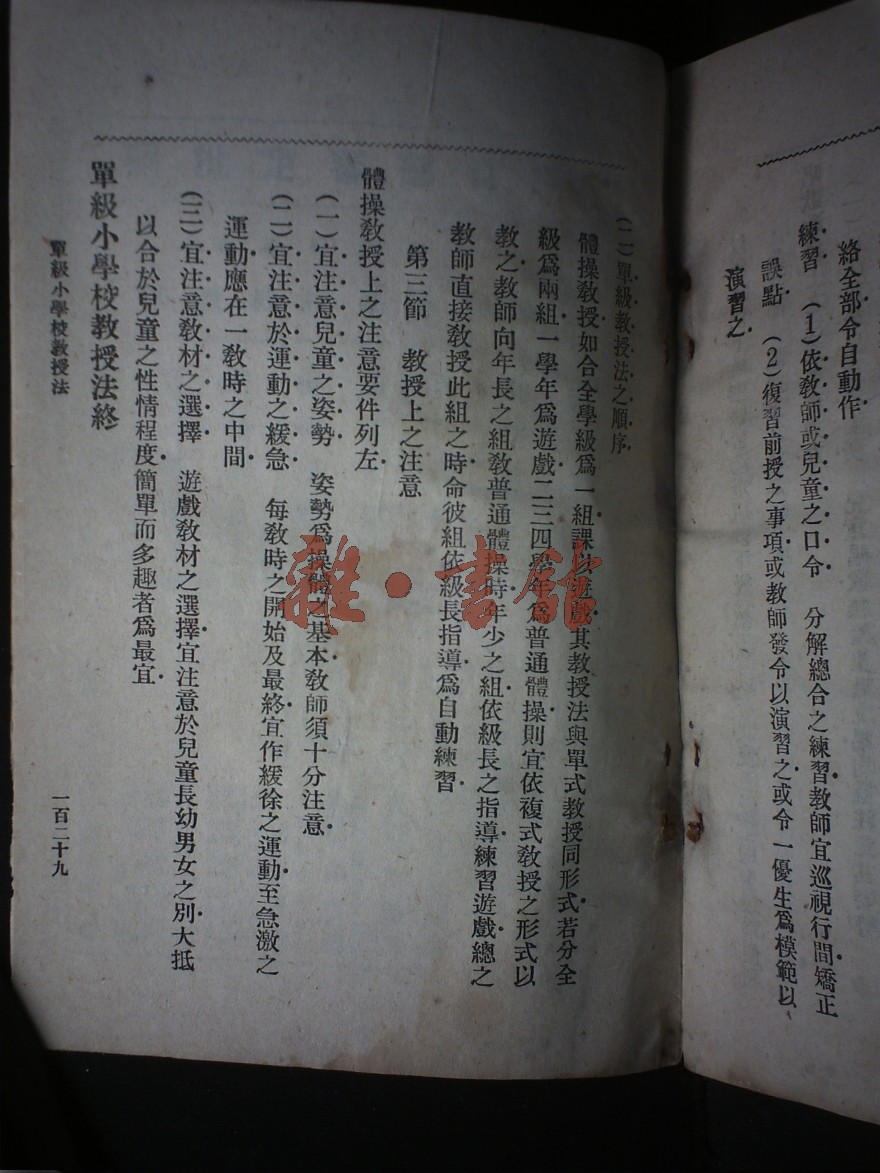 絡全部令自動作
練習　(1)依教師或兒童之口令　分解總合之練習教師宜巡視行間矯正
誤點　(2)復習前授之事項或教師發令以演習之或令一優生爲模範以
演習之
(二)單級教授法之順序
體操教授如合全學級爲一組課以遊戲其教授法與單式教授同形式若分全
級爲兩組一學年爲遊戲二三四學年爲普通體操則宜依複式教授之形式以
教之教師向年長之組教普通體操時年少之組依級長之指導練習遊戲總之
教師直接教授此組之時命彼組依級長指導爲自動練習
第三節　教授上之注意
體操教授上之注意要件列左
(一)宜注意兒童之姿勢　姿勢爲操體之基本教師須十分注意
(二)宜注意於運動之緩急　每教時之開始及最終宜作緩徐之運動至急激之
運動應在一教時之中間
(三)宜注意教材之選擇　遊戲教材之選擇宜注意於兒童長幼男女之別大抵
以合於兒童之性情程度簡單而多趣者爲最宜
單級小學校教授法終
單級小學校教授法
一百二十九
雜·書館